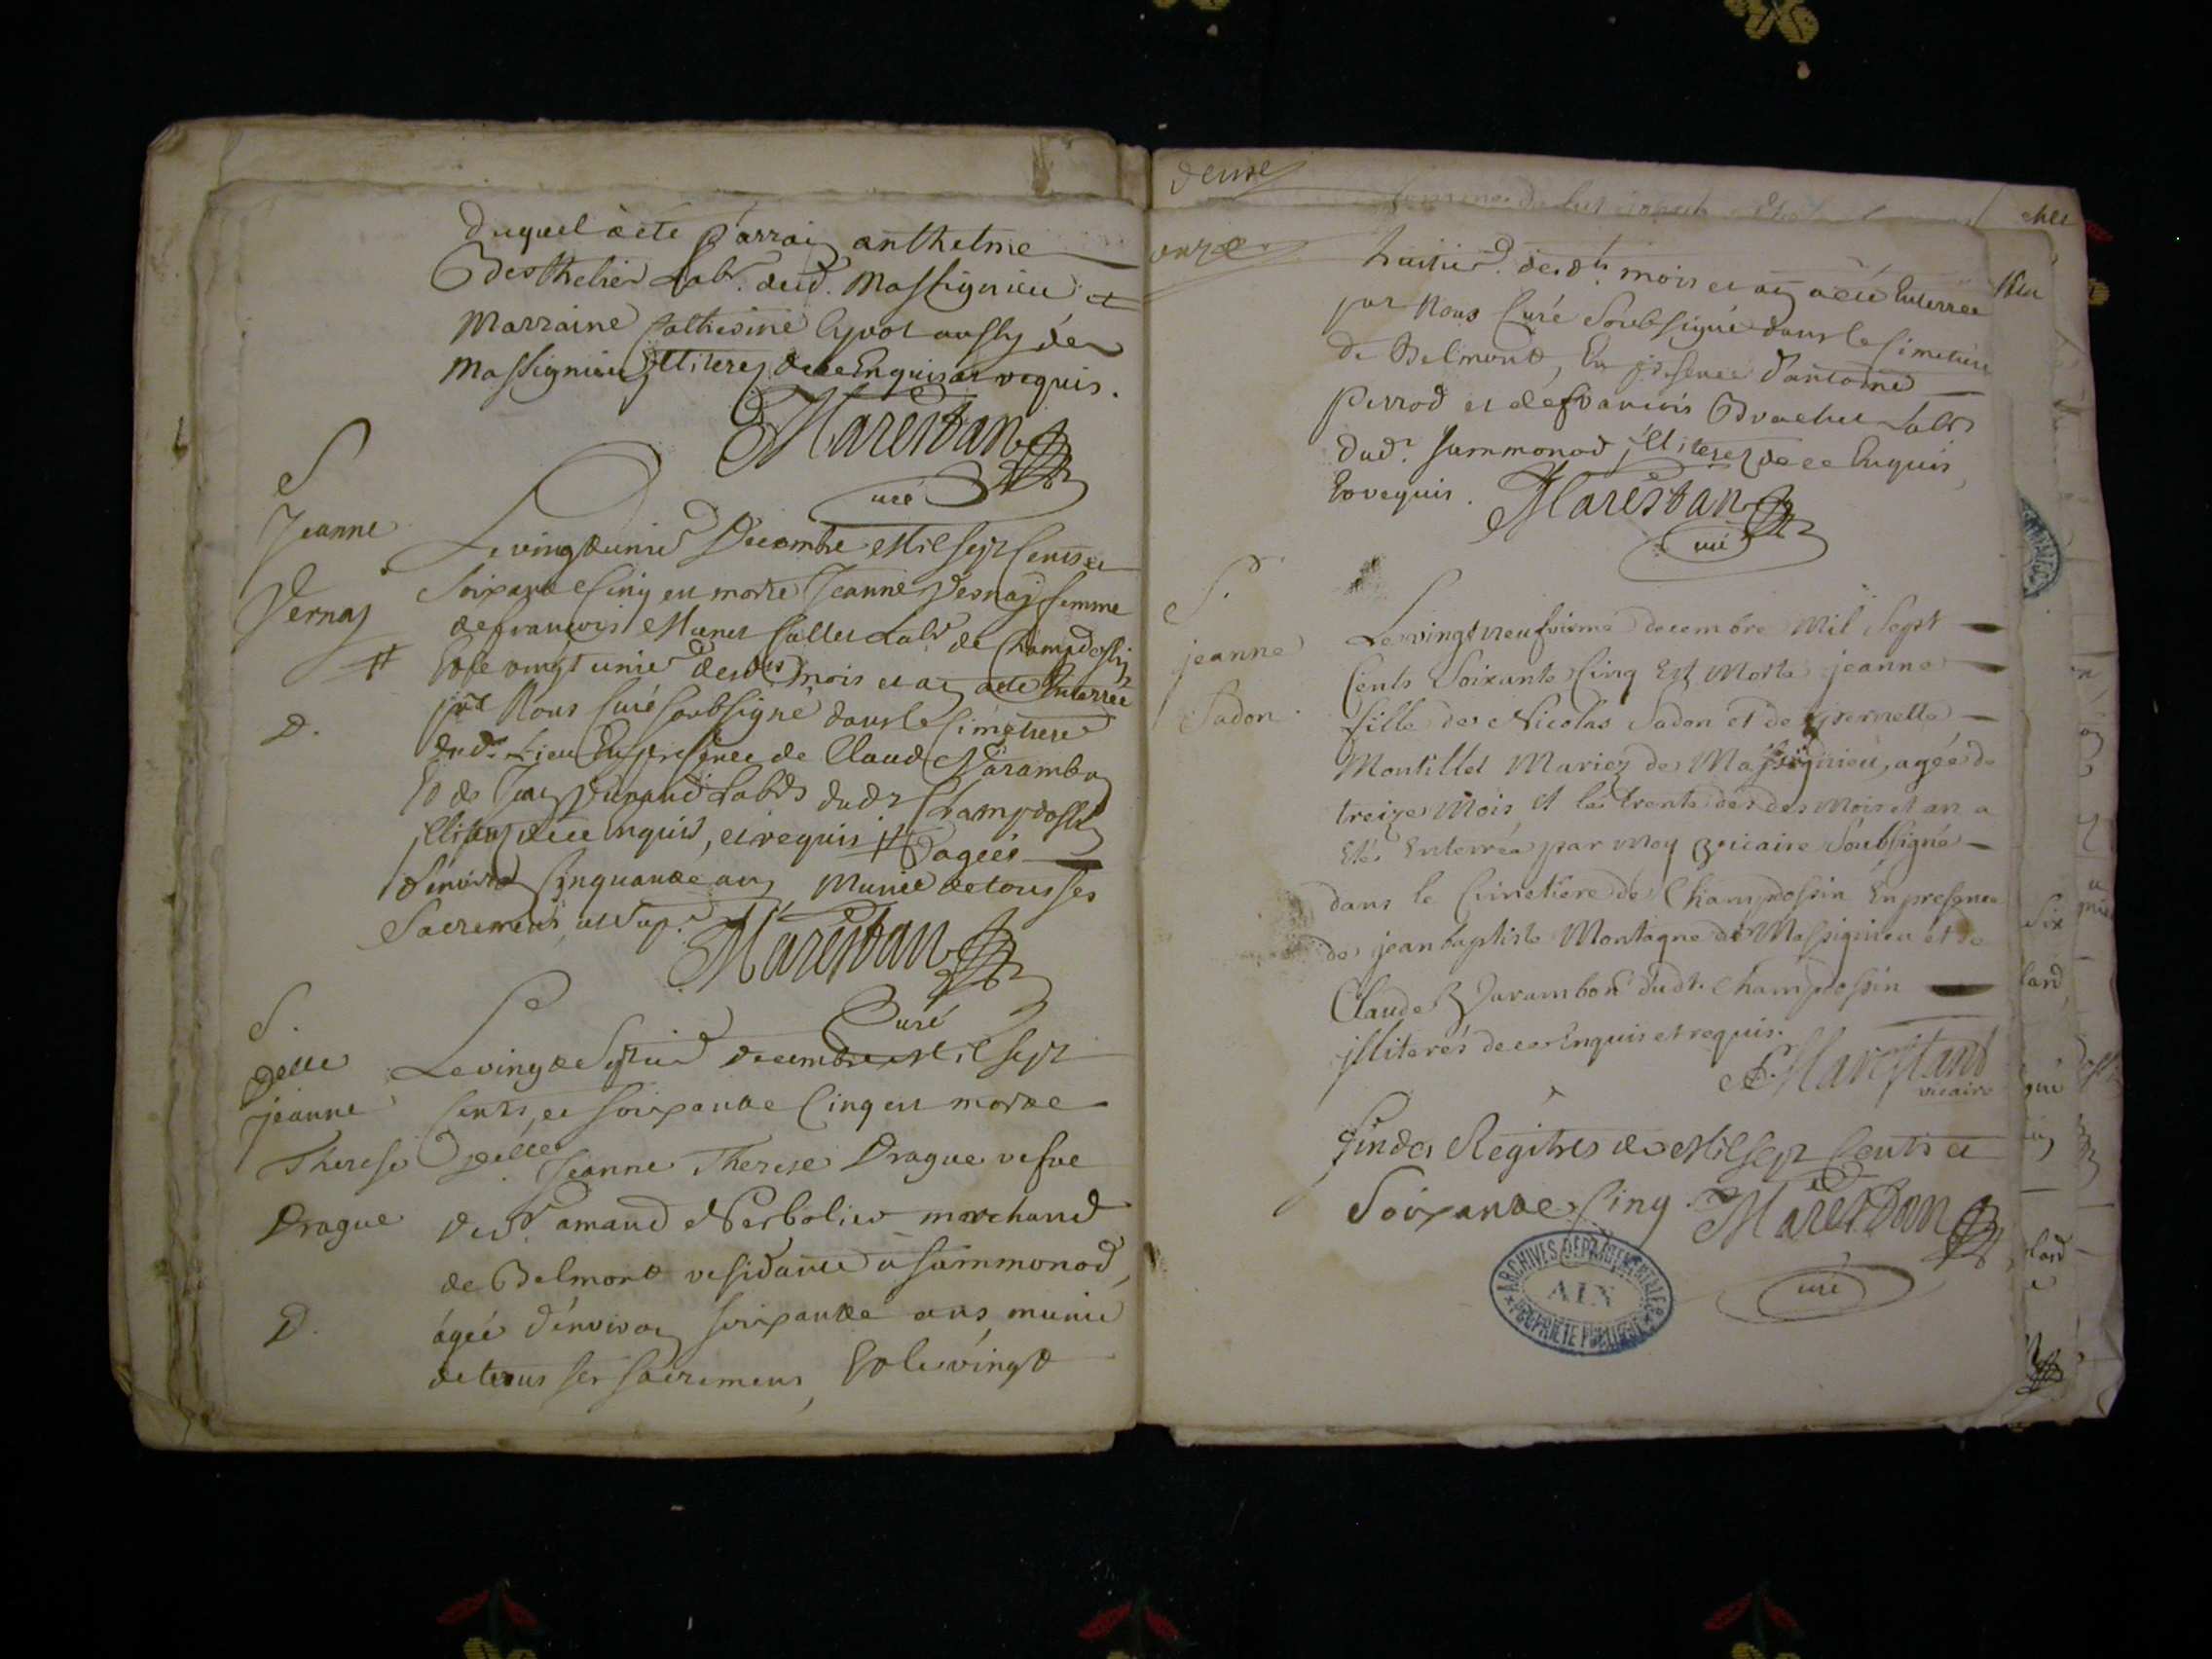 duquel à eté parrain anthelme
Berthelier Labr. dud. Massignieu et
marraine Catherine Cyvot aussy de
Massignieu jlliterez de ce Enquis et requis.
Marestan
curé
S
Jeanne
Vernay
#
D.
Le vingtunie Decembre Mil sept Cents et
soixante Cinq est morte Jeanne Vernay femme
de françois Callet Labr de Champdossin
Et le vingt unie desdts mois et an a eté Enterrée
par Nous Curé soubsigné dans le Cimetiere
dudt Lieu En presence de Claude Jarambon
Et de Jean Labrs dudt Champdossin
jlliterez de ce enquis, et requis # agée
d'environ Cinquante ans Munie de tous ses
Sacremens
Marestan
Curé
S.
Delle
jeanne
Therese
Drague
D.
Le vingt Septie decembre Mil sept
Cents, et soixante Cinq est morte
Delle Jeanne Therese Drague vefve
de Sr. amand Nerbolier marchand
de Belmont residante à Sammonod,
ágée d'environ soixante ans, munie
de tous ses sacremens, Et le vingt
deuxe
onze
huitie. desdts. mois et an a eté Enterrée
par Nous Curé Soubsigné dans le Cimetiere
de Belmont, En presence d'antoine
perrod et de françois Brachet Labrs
dudt. Sammonod jlliterez de ce Enquis
Et requis.
Marestan
curé
S.
jeanne
Sadon.
Le vingt neufvieme decembre Mil Sept
Cents Soixante Cinq Est Morte jeanne
fille de Nicolas Sadon et de pernette
Montillet Mariez de Massignieu, agée de
treize Mois, et le trente des des Mois et an a
Eté Enterrée par moy vicaire Soubsigné
dans le Cimetiere de Champdossin En presence
de jean baptiste Montagne de Massignieu et de
Claude Jarambon dudt. Champdossin
jlliterés de ce Enquis et requis.
Marestant
vicaire
fin des Regitres de Mil sept Cents et
Soixante Cinq. Marestan
curé
ARCHIVES DÉPARTEMENTALES
AIN
PROPRIÉTÉ PUBLIQUE